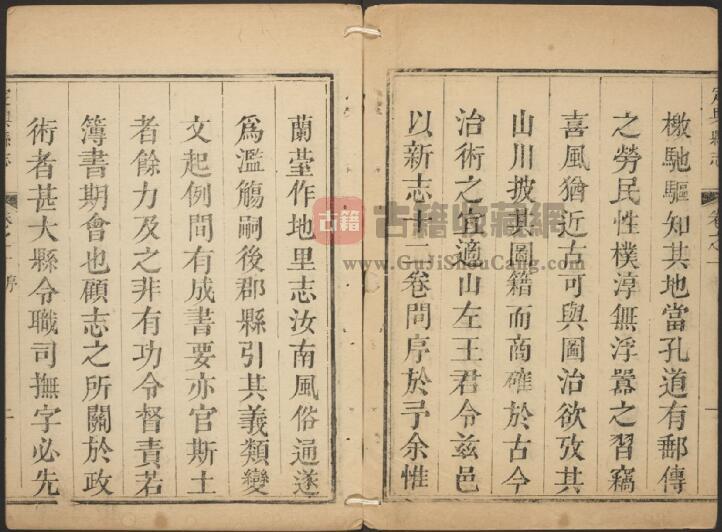 檄馳驅知其地當孔道有郵傳
之勞民性樸淳無浮囂之習竊
喜風猶近古可與圖治欲攷其
山川披其圖籍而商確於古今
治術之宜適山左王君令茲邑
以新志十二卷問序於予余惟
蘭臺作地里志汝南風俗通遂
爲濫觴嗣後郡縣引其義類變
文起例間有成書要亦官斯土
者餘力及之非有功令督責若
簿書期會也顧志之所關於政
術者甚大縣令職司撫字必先
定興縣志
卷之一
定興縣志
卷之一 序
古籍
古籍收藏網
www.GuJiShouCang.com